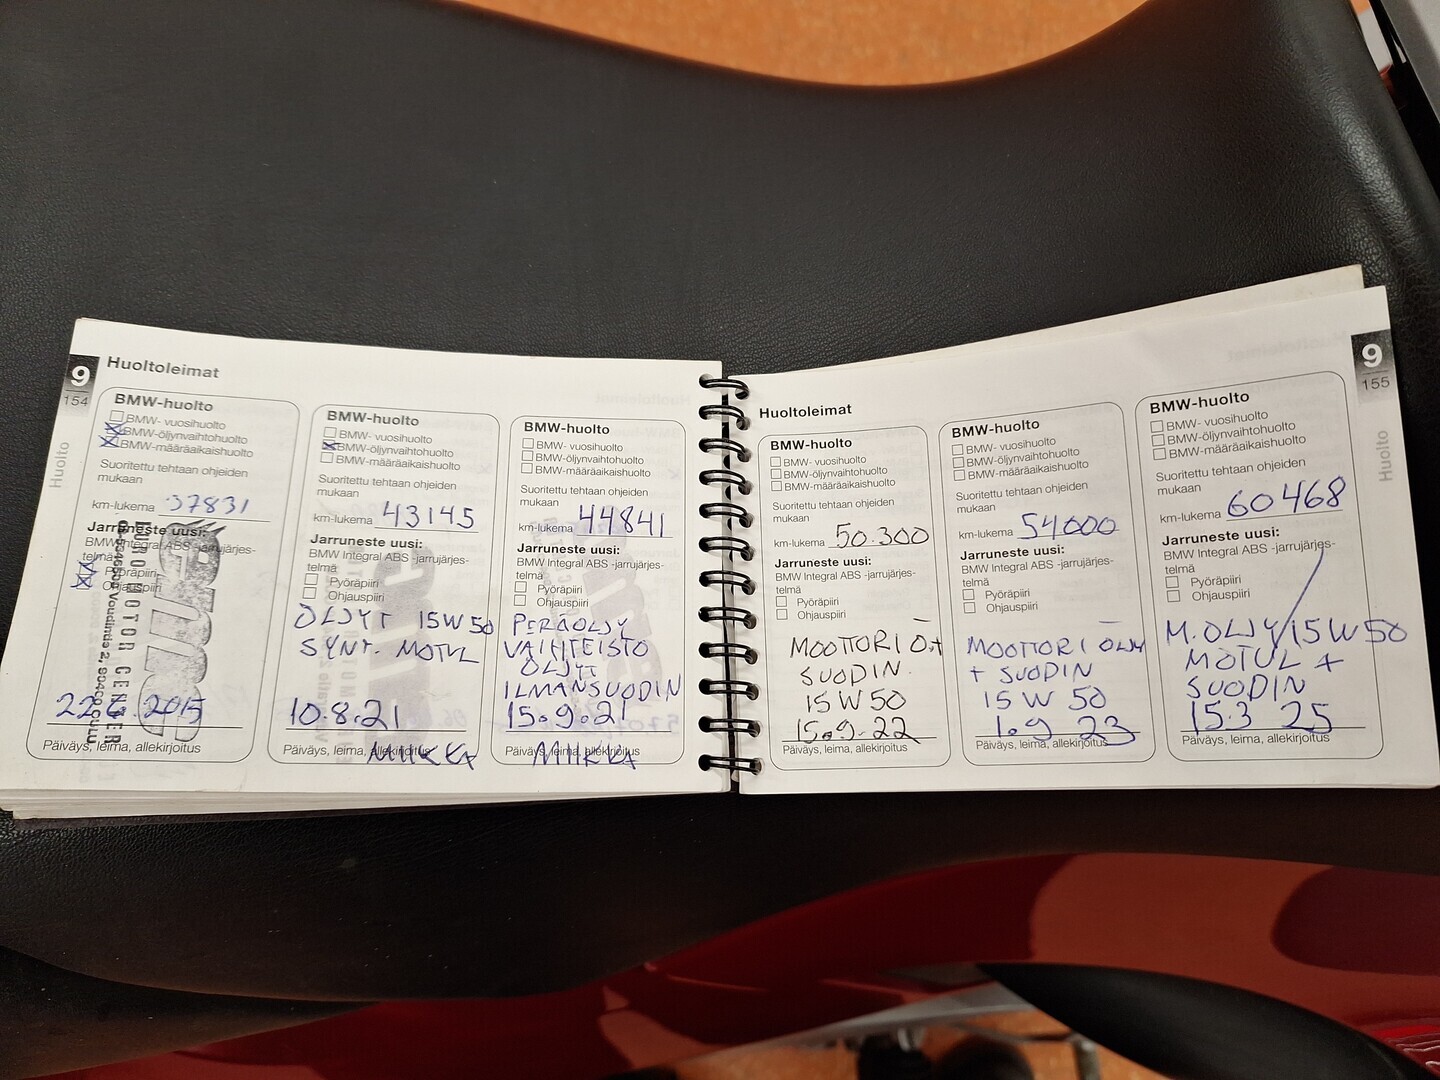 9
154
Huolto
Huoltoleimat
BMW-huolto
BMW- vuosihuolto
BMW-öljynvaihtohuolto
BMW-määräaikaishuolto
Suoritettu tehtaan ohjeiden
mukaan
km-lukema 37831
Jarruneste uusi:
BMW Integral ABS -jarrujärjes-
telmä
Pyöräpiiri
Ohjauspiiri
MOTOR CENTER
Voudintie 2, 90400 OULU
2015
Päiväys, leima, allekirjoitus
BMW-huolto
BMW- vuosihuolto
BMW-öljynvaihtohuolto
BMW-määräaikaishuolto
Suoritettu tehtaan ohjeiden
mukaan
km-lukema 43145
Jarruneste uusi:
BMW Integral ABS -jarrujärjes-
telmä
Pyöräpiiri
Ohjauspiiri
ÖLJYT 15W50
SYNT. MOTUL
10.8.21
Päiväys, leima, allekirjoitus
MIIKKA
BMW-huolto
BMW- vuosihuolto
BMW-öljynvaihtohuolto
BMW-määräaikaishuolto
Suoritettu tehtaan ohjeiden
mukaan
km-lukema 44841
Jarruneste uusi:
BMW Integral ABS -jarrujärjes-
telmä
Pyöräpiiri
Ohjauspiiri
PERÄÖLJY
VAIHTEISTO
ÖLJYT
ILMANSUODIN
15.9.21
Päiväys, leima, allekirjoitus
MIIKKA
Huoltoleimat
BMW-huolto
BMW- vuosihuolto
BMW-öljynvaihtohuolto
BMW-määräaikaishuolto
Suoritettu tehtaan ohjeiden
mukaan
km-lukema 50.300
Jarruneste uusi:
BMW Integral ABS -jarrujärjes-
telmä
Pyöräpiiri
Ohjauspiiri
MOOTTORI Ö.+
SUODIN.
15W50
15.9.22
Päiväys, leima, allekirjoitus
BMW-huolto
BMW- vuosihuolto
BMW-öljynvaihtohuolto
BMW-määräaikaishuolto
Suoritettu tehtaan ohjeiden
mukaan
km-lukema 54000
Jarruneste uusi:
BMW Integral ABS -jarrujärjes-
telmä
Pyöräpiiri
Ohjauspiiri
MOOTTORI ÖLJY
+ SUODIN
15W 50
1.9 23
Päiväys, leima, allekirjoitus
BMW-huolto
BMW- vuosihuolto
BMW-öljynvaihtohuolto
BMW-määräaikaishuolto
Suoritettu tehtaan ohjeiden
mukaan
km-lukema 60468
Jarruneste uusi:
BMW Integral ABS -jarrujärjes-
telmä
Pyöräpiiri
Ohjauspiiri
M.ÖLJY/15W50
MOTUL +
SUODIN
15.3 25
Päiväys, leima, allekirjoitus
9
155
Huolto